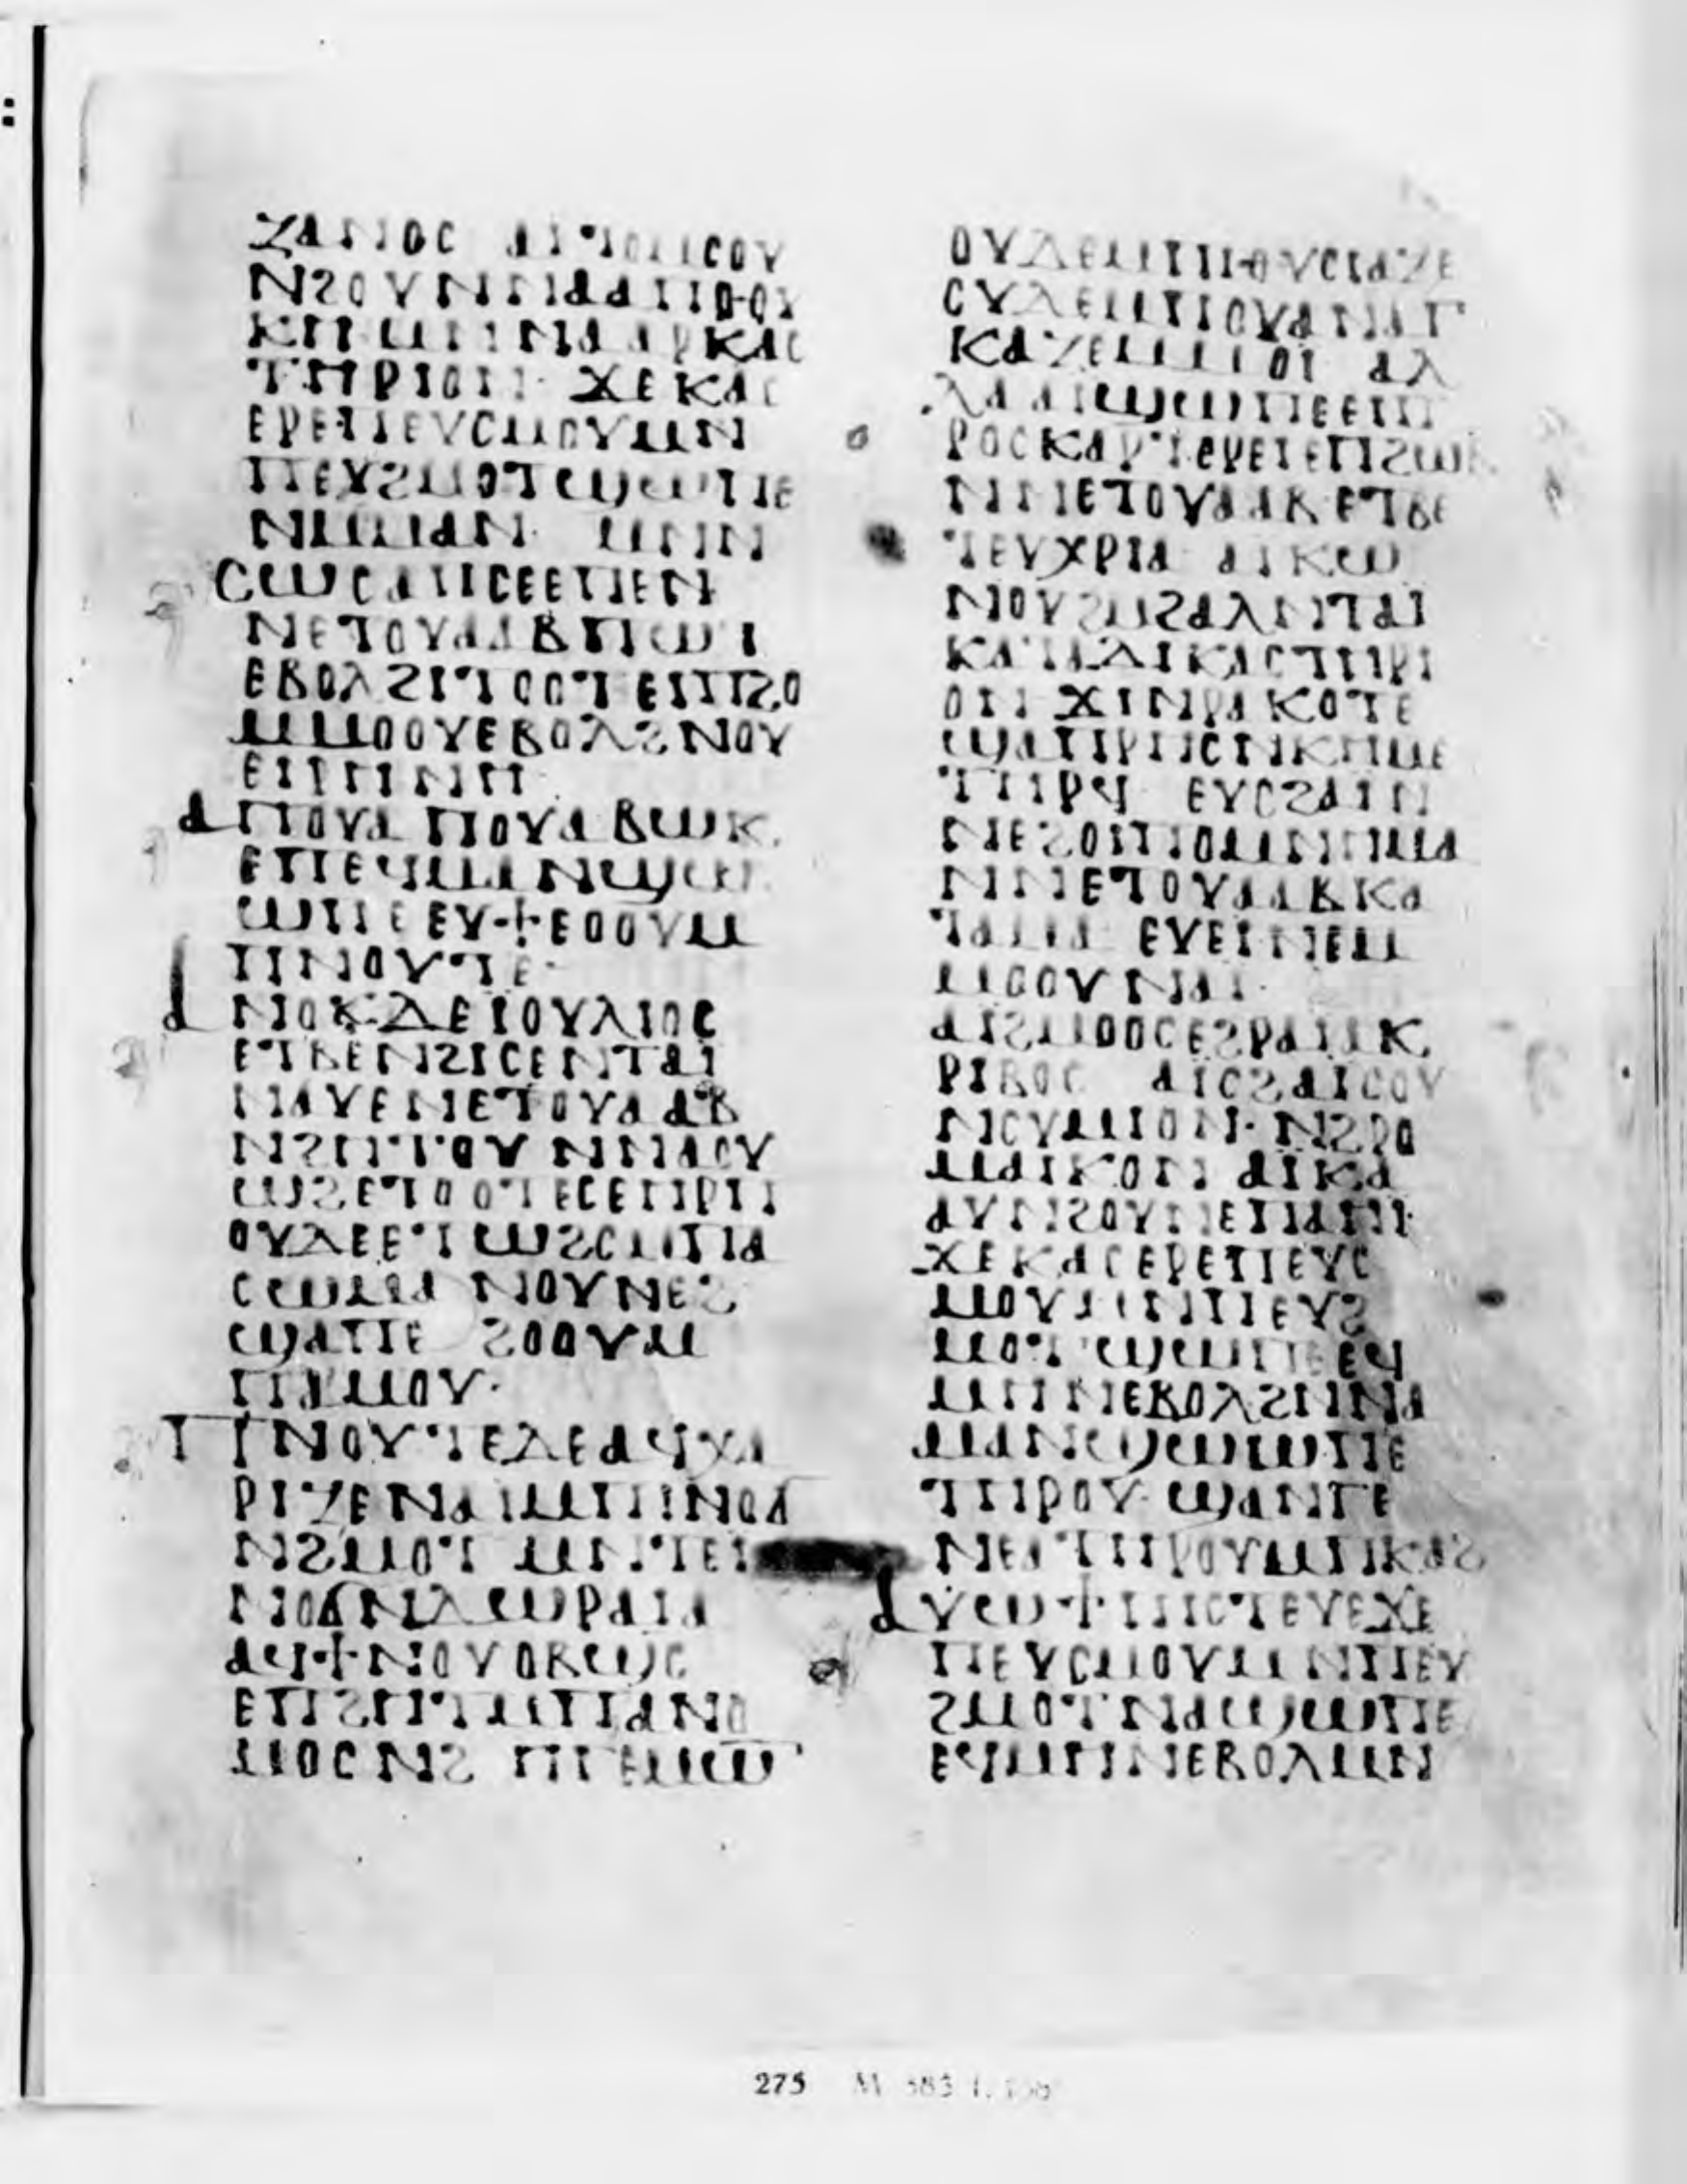 ⲍⲁⲛⲓⲟⲥ ⲁⲓⲧⲟⲙⲥⲟⲩ
ⲛϩⲟⲩⲛⲛⲛⲁⲁⲡⲟⲑⲟⲩ
ⲕⲏ ⲙⲛⲛⲁ ⲁⲣⲕⲁⲥ
ⲧⲏⲣⲓⲟⲛ· ϫⲉⲕⲁⲥ
ⲉⲣⲉⲡⲉⲩⲥⲙⲟⲩⲙⲛ
ⲡⲉⲩϩⲙⲟⲧϣⲱⲡⲉ
ⲛⲙⲙⲁⲛ· ⲙⲛⲛ
ⲥⲱⲥⲁⲡⲥⲉⲉⲡⲉⲛ
ⲛⲉⲧⲟⲩⲁⲁⲃⲡⲱⲧ
ⲉⲃⲟⲗϩⲓⲧⲟⲟⲧⲉⲓⲡϩⲟ
ⲙⲙⲟⲟⲩⲉⲃⲟⲗϩⲛⲟⲩ
ⲉⲓⲣⲏⲛⲏ·
ⲁⲡⲟⲩⲁ ⲡⲟⲩⲁ ⲃⲱⲕ
ⲉⲡⲉϥⲙⲁⲛϣⲱ
ⲱⲡⲉ ⲉⲩϯⲉⲟⲟⲩⲙ
ⲡⲛⲟⲩⲧⲉ·
ⲁⲛⲟⲕⲇⲉⲓⲟⲩⲗⲓⲟⲥ
ⲉⲧⲃⲉⲛϩⲓⲥⲉⲛⲧⲁⲓ
ⲛⲁⲩⲉⲛⲉⲧⲟⲩⲁⲁⲃ
ⲛϩⲏⲧⲟⲩ ⲛⲛⲁⲟⲩ
ⲱϩⲉⲧⲟⲟⲧⲉⲥⲉⲡⲣⲏ
ⲟⲩⲇⲉⲉⲧⲱϩⲥⲙⲡⲁ
ⲥⲱⲙⲁ ⲛⲟⲩⲛⲉϩ
ϣⲁⲡⲉ ϩⲟⲟⲩⲙ
ⲡⲁⲙⲟⲩ·
ⲡⲛⲟⲩⲧⲉⲇⲉⲁϥⲭⲁ
ⲣⲓⲍⲉⲛⲁⲓⲙⲡⲓⲛⲟϭ
ⲛϩⲙⲟⲧ ⲙⲛⲧⲉⲓ
ⲛⲟϭⲛⲇⲱⲣⲁⲓⲁ
ⲁϥϯⲛⲟⲩⲟⲃϣⲥ
ⲉⲡϩⲏⲧⲙⲡⲁⲛⲟ
ⲙⲟⲥ ⲛϩ ⲏⲅⲉⲙⲱ
ⲟⲩⲇⲉⲙⲡⲓⲑⲩⲥⲓⲁⲍⲉ
ⲟⲩⲇⲉⲙⲡⲟⲩⲁⲛⲁⲅ
ⲕⲁⲍⲉⲙⲙⲟⲓ ⲁⲗ
ⲗⲁ ⲁⲓϣⲱⲡⲉⲉⲓⲡ
ⲣⲟⲥⲕⲁⲣⲧⲉⲣⲉⲓⲉⲡϩⲱⲃ
ⲛⲛⲉⲧⲟⲩⲁⲁⲃ ⲉⲧⲃⲉ
ⲧⲉⲩⲭⲣⲓⲁ ⲁⲓⲕⲱ
ⲛⲟⲩϩⲙϩⲁⲗⲛⲧⲁⲓ
ⲕⲁⲧⲁⲇⲓⲕⲁⲥⲧⲏⲣⲓ
ⲟⲛ ϫⲓⲛⲣⲁⲕⲟⲧⲉ
ϣⲁⲡⲣⲏⲥⲛⲕⲏⲙⲉ
ⲧⲏⲣϥ ⲉⲩⲥϩⲁⲓⲛ
ⲛⲉϩⲟⲙⲟⲙⲛⲏⲙⲁ
ⲛⲛⲉⲧⲟⲩⲁⲁⲃⲕⲁ
ⲧⲁⲙⲁ ⲉⲩⲉⲓⲛⲉⲙ
ⲙⲟⲟⲩ ⲛⲁⲓ·
ⲁⲓϩⲙⲟⲟⲥⲉϩⲣⲁⲓⲁⲕ
ⲣⲓⲃⲟⲥ ⲁⲓⲥϩⲁⲓⲥⲟⲩ
ⲛⲥⲩⲙⲓⲟⲛ· ⲛϩⲣⲟ
ⲙⲁⲓⲕⲟⲛ ⲁⲓⲕⲁ
ⲁⲩⲛϩⲟⲩⲛⲉⲡⲁⲏⲓ·
ϫⲉⲕⲁⲥⲉⲣⲉⲡⲉⲩⲥ
ⲙⲟⲩⲙⲛⲡⲉⲩϩ
ⲙⲟⲧ ϣⲱⲡⲉ ⲉϥ
ⲙⲏⲛⲉⲃⲟⲗϩⲛⲛⲁ
ⲙⲁⲛϣⲱⲱⲡⲉ
ⲧⲏⲣⲟⲩ ϣⲁⲛⲅⲉ
ⲛⲉⲁ ⲧⲏⲣⲟⲩⲙⲡⲕⲁϩ
ⲁⲩⲱϯⲡⲓⲥⲧⲉⲩⲉϫⲉ
ⲡⲉⲩⲥⲙⲟⲩⲙⲛⲡⲉⲩ
ϩⲙⲟⲧⲛⲁϣⲱⲡⲉ
ⲉϥⲙⲏⲛⲉⲃⲟⲗⲙⲛ
275 M 583 f.